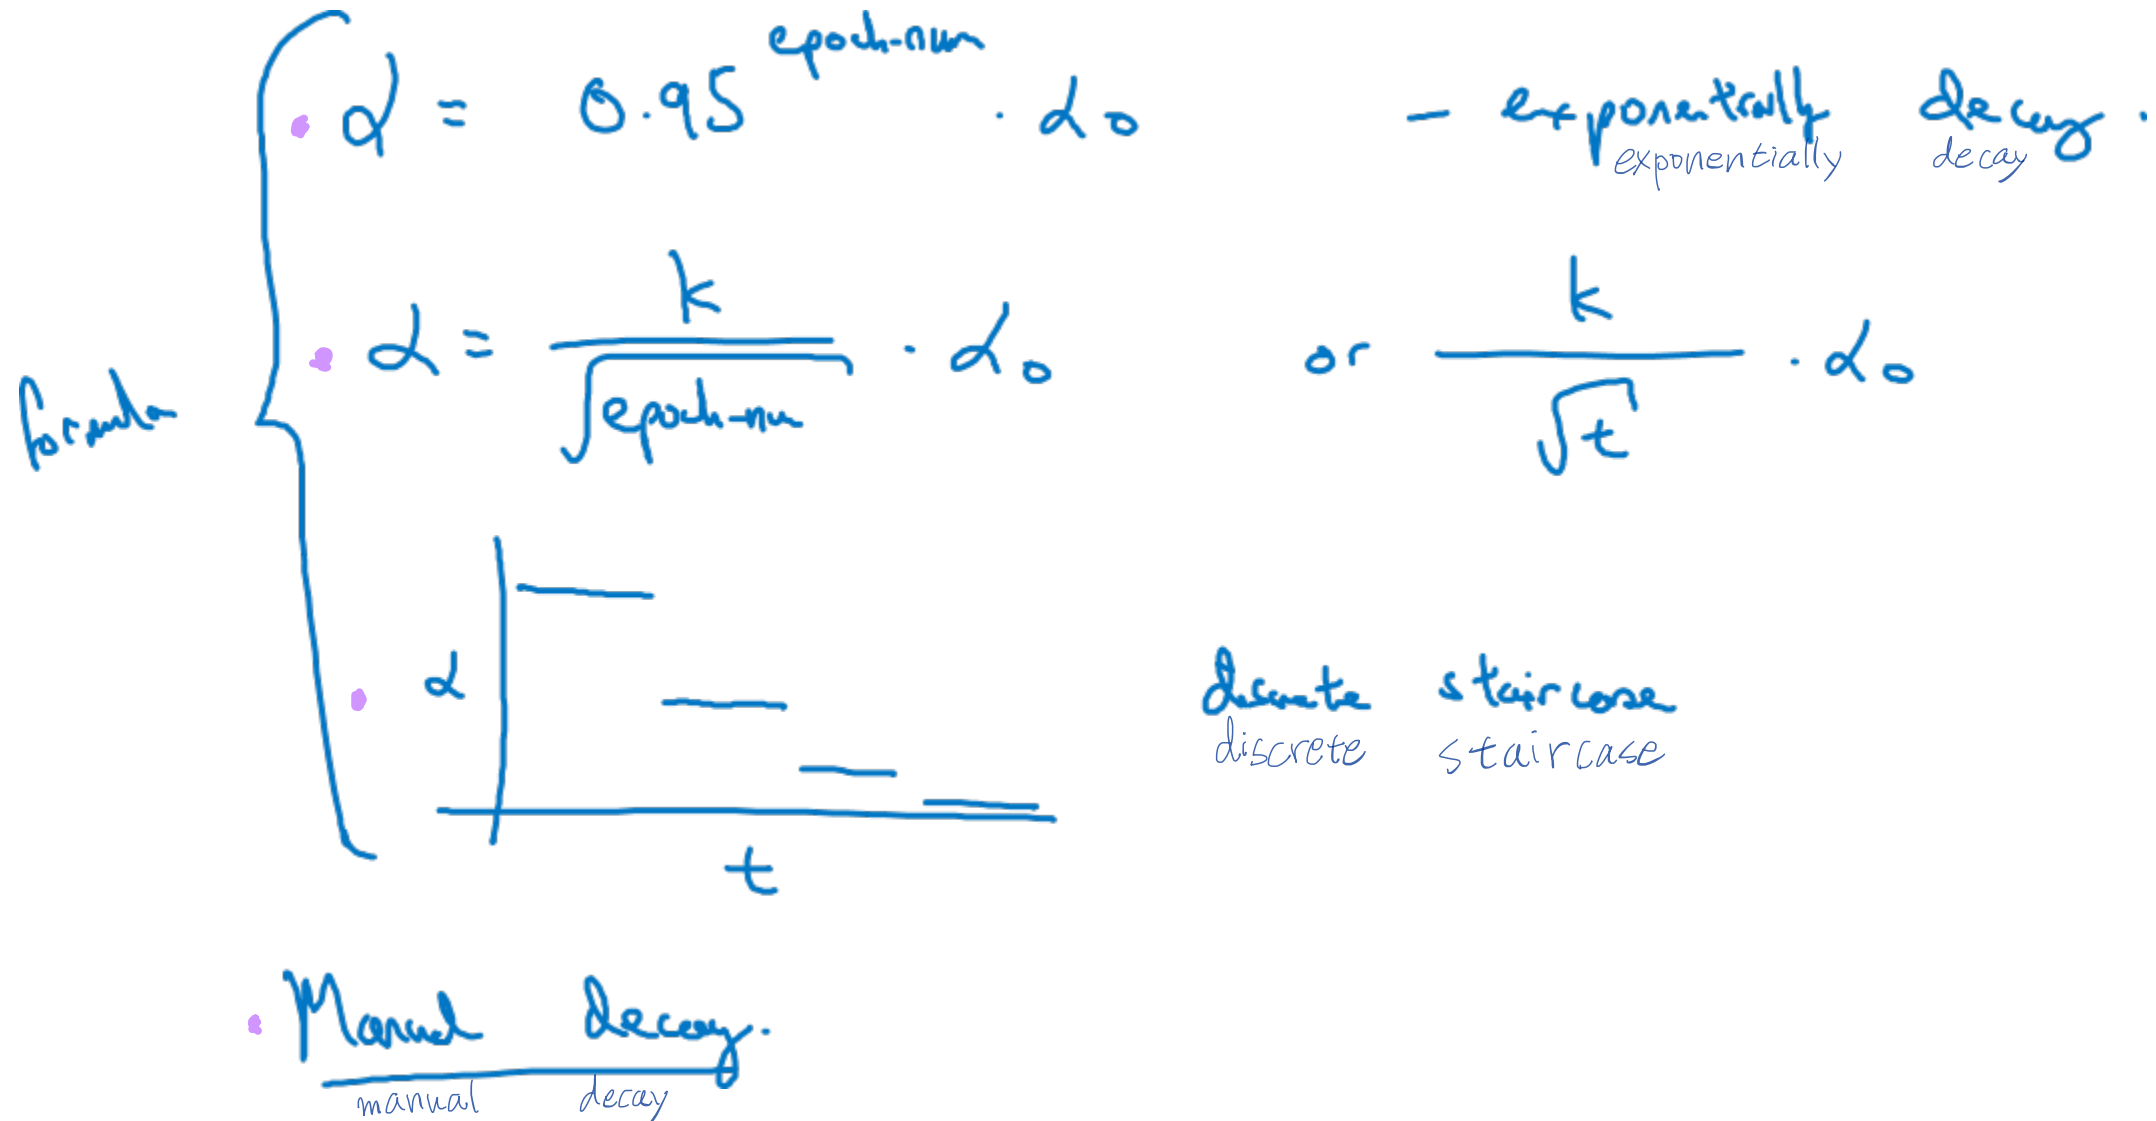 α = 0.95^epoch-num · α₀ - exponentially decay.
exponentially decay
formula
α = k / √epoch-num · α₀ or k / √t · α₀
α
discrete staircase
discrete staircase
t
Manual decay.
manual decay